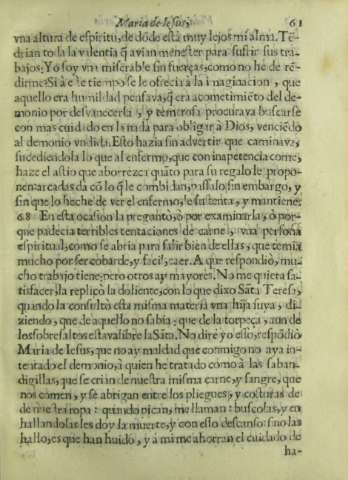 Maria de Iesus, 61
vna altura de espiritu, de dõde està muy lejos mi alma. Tẽ-
drian toda la valentia q̃ avian menester para sufrir sus tra-
bajos; Yo soy vna miserable sin fuerças, como no he de rẽ-
dirme? Si à este tiempo se le ofrecia à la imaginacion, que
aquello era humildad pensava, q̃ era acometimiẽto del de-
monio por desvanecerla, y temerosa procurava buscarse
con mas cuidado en la nada para obligar à Dios, venciẽdo
al demonio vndida. Esto hazia sin advertir que caminava,
sucediendola lo que al enfermo, que con inapetencia come,
haze el astio que aborrezca quãto para su regalo le propo-
nen arcadas da cõ lo q̃ le combidan, passalo sin embargo, y
sin que lo heche de ver el enfermo, le sustenta, y mantiene.
68 En esta ocasion la preguntò, ò por examinarla, ò por-
que padecia terribles tentaciones de carne, vna persona
espiritual, como se abria para salir bien de ellas, que temia
mucho por ser cobarde, y facil, caer. A que respondiò, mu-
cho trabajo tiene; pero otros ay mayores. No me quiera sa-
tisfacer, la replicò la doliente, con lo que dixo Sãta Teresa,
quando la consultò esta misma materia vna hija suya, di-
ziendo, que de aquello no sabia; que de la torpeça, aun de
los sobresaltos estava libre la Sãta. No dirè yo esso, respõdiò
Maria de Iesus, que no ay maldad que conmigo no aya in-
tentado el demonio, à quien he tratado como à las saban-
digillas, que se crian de nuestra misma carne, y sangre, que
nos comen, y se abrigan entre los pliegues, y costuras de
de nuestra ropa: quando pican, me llaman: buscolas, y en
hallandolas les doy la muerte, y con esso descanso: sino las
hallo, es que han huido, y à mi me ahorran el cuidado de
ha-